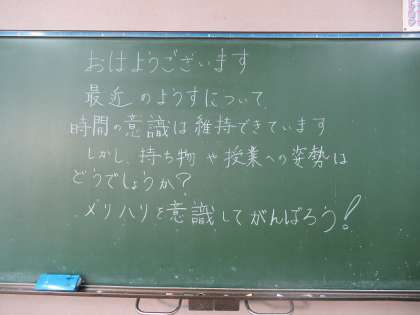 おはようございます
最近のようすについて、
時間の意識は維持できています
しかし、持ち物や授業への姿勢は
どうでしょうか?
メリハリを意識してがんばろう!